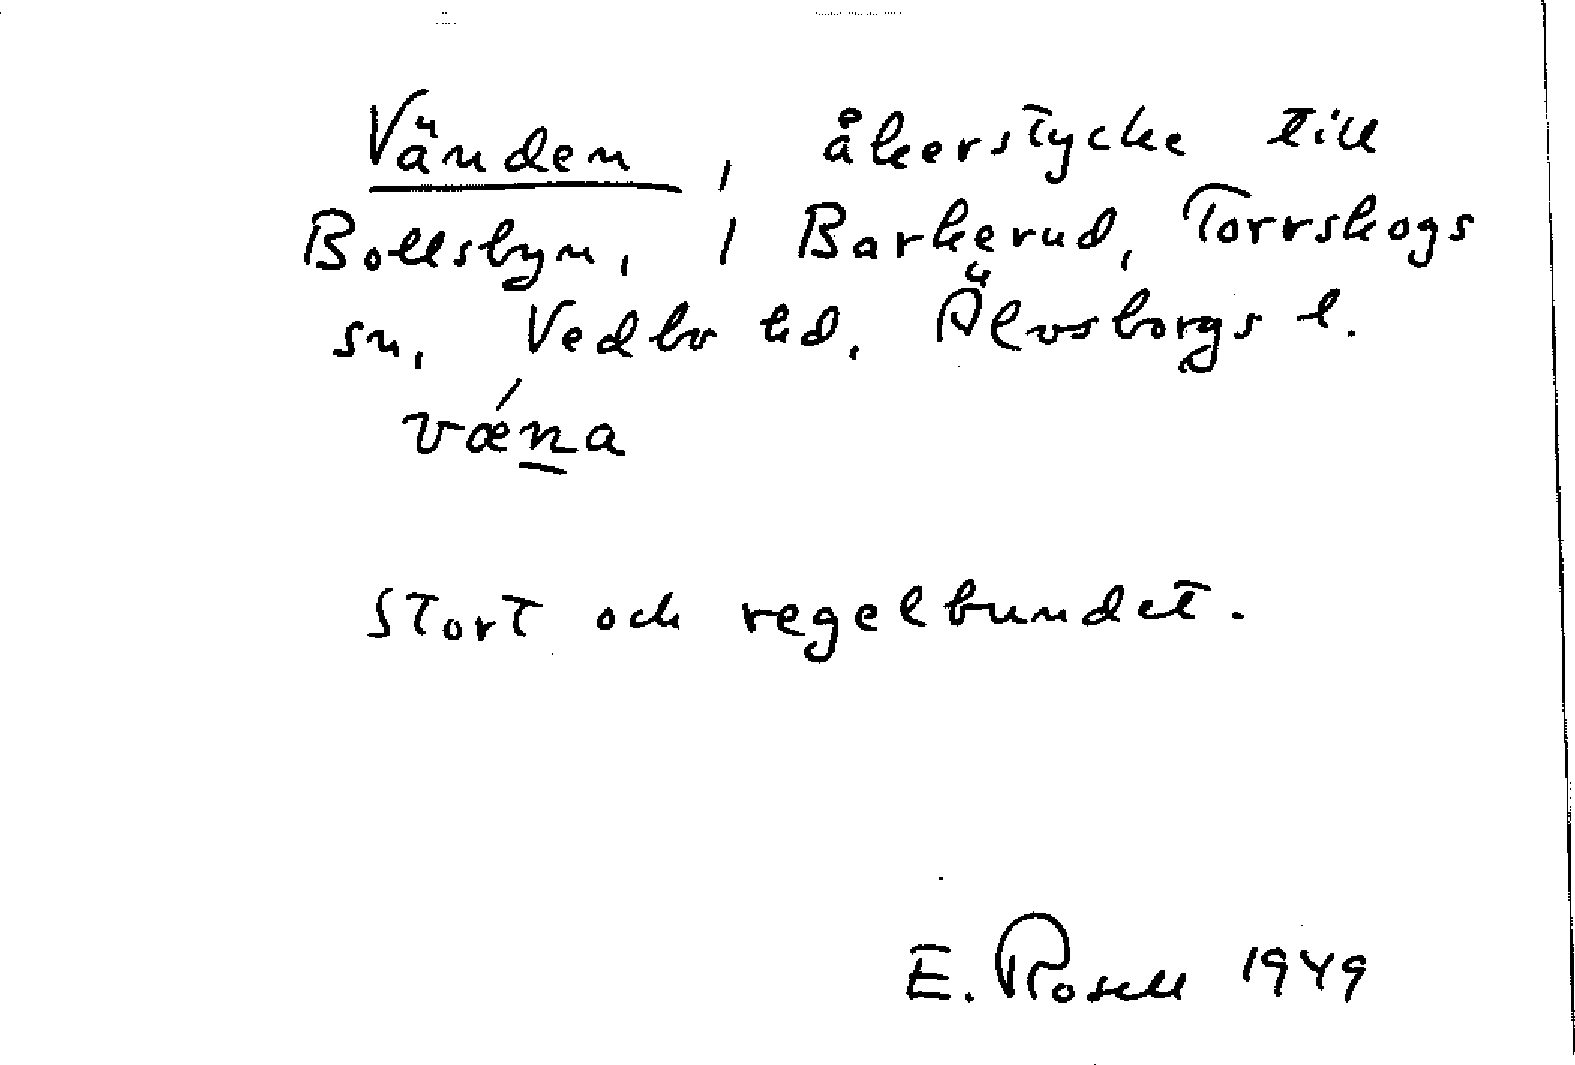 Vänden, åkerstycke till
Bollsbyn, / Barkerud, Torrskogs
sn, Vedbo hd, Älvsborgs l.
vǽn̲a
Stort och regelbundet.
E. Rosell 1949